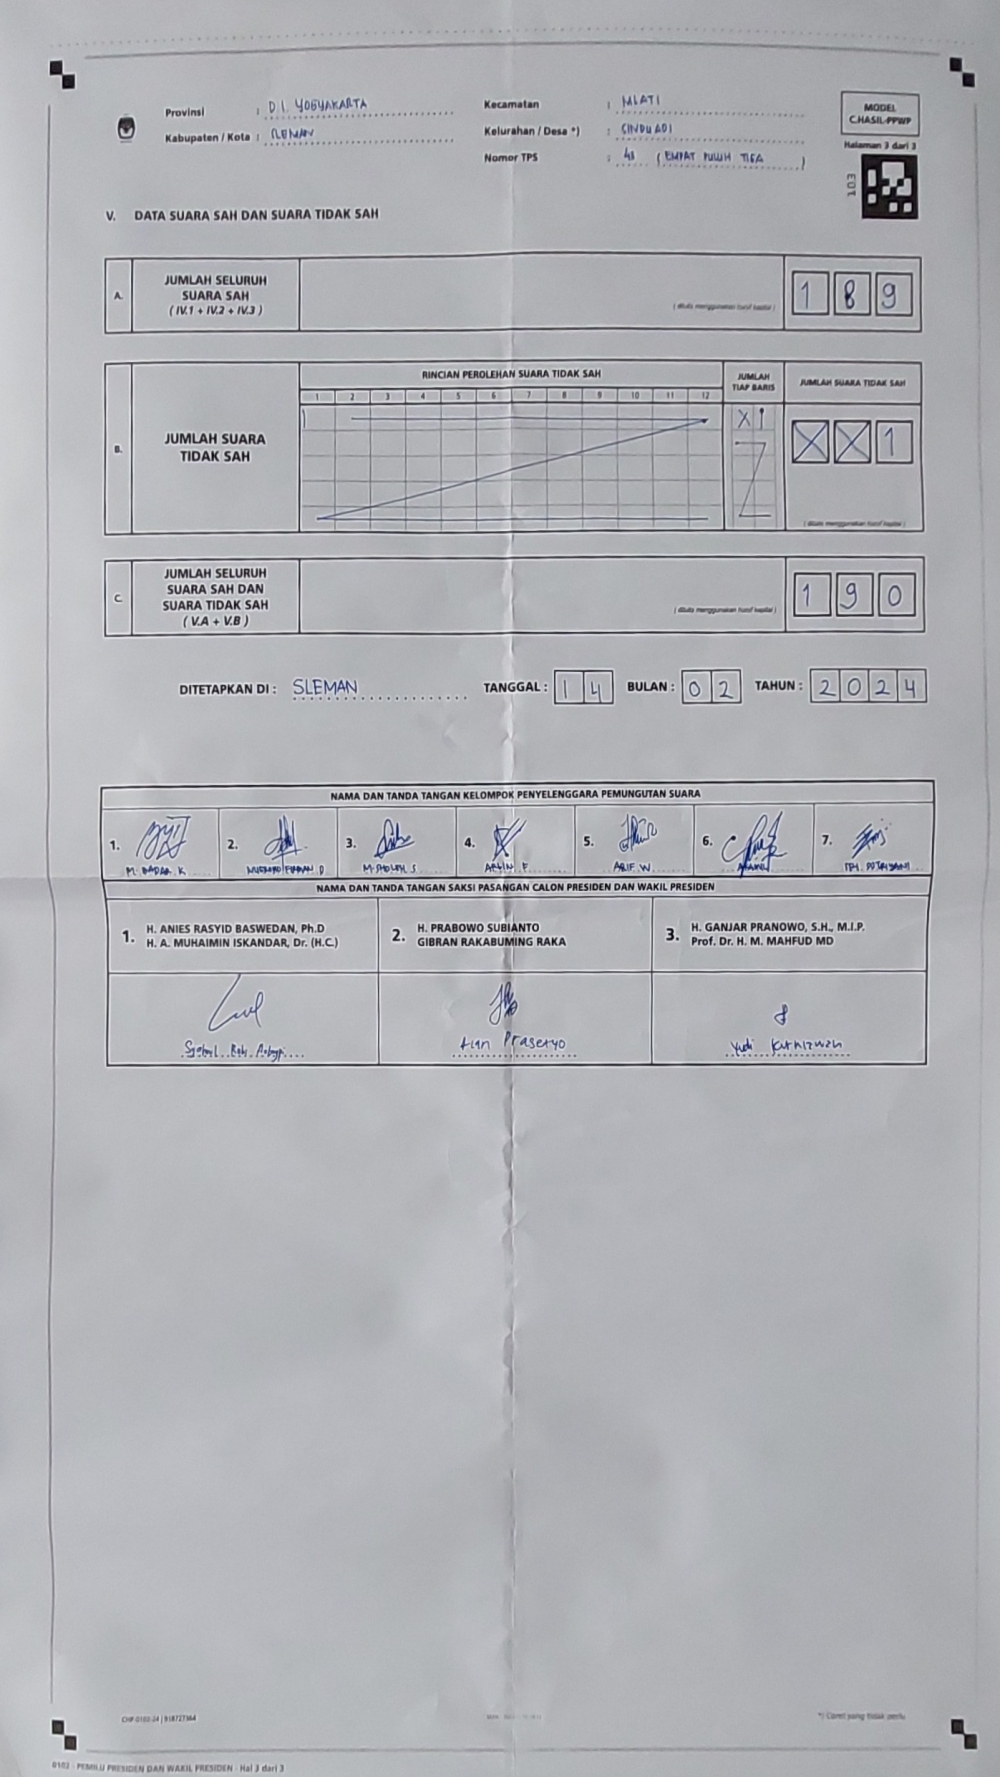 Provinsi : D.I. YOGYAKARTA
Kabupaten / Kota : SLEMAN
Kecamatan : MLATI
Kelurahan / Desa *) : SINDUADI
Nomor TPS : 43 ( EMPAT PULUH TIGA )
MODEL
C.HASIL-PPWP
Halaman 3 dari 3
V. DATA SUARA SAH DAN SUARA TIDAK SAH
A.
JUMLAH SELURUH
SUARA SAH
( IV.1 + IV.2 + IV.3 )
( ditulis menggunakan huruf kapital )
1 8 9
B.
JUMLAH SUARA
TIDAK SAH
RINCIAN PEROLEHAN SUARA TIDAK SAH
1 2 3 4 5 6 7 8 9 10 11 12
JUMLAH
TIAP BARIS
X 1
JUMLAH SUARA TIDAK SAH
X X 1
( ditulis menggunakan huruf kapital )
C.
JUMLAH SELURUH
SUARA SAH DAN
SUARA TIDAK SAH
( V.A + V.B )
( ditulis menggunakan huruf kapital )
1 9 0
DITETAPKAN DI : SLEMAN TANGGAL : 1 4 BULAN : 0 2 TAHUN : 2 0 2 4
NAMA DAN TANDA TANGAN KELOMPOK PENYELENGGARA PEMUNGUTAN SUARA
1. 2. 3. 4. 5. 6. 7.
M. BADAR. K M. SHOLEH S ARLIN F ARIF W.
NAMA DAN TANDA TANGAN SAKSI PASANGAN CALON PRESIDEN DAN WAKIL PRESIDEN
1. H. ANIES RASYID BASWEDAN, Ph.D
H. A. MUHAIMIN ISKANDAR, Dr. (H.C.)
2. H. PRABOWO SUBIANTO
GIBRAN RAKABUMING RAKA
3. H. GANJAR PRANOWO, S.H., M.I.P.
Prof. Dr. H. M. MAHFUD MD
Prasetyo
Yudi Kurniawan
CHP-0102-24 | 918727364
*) Coret yang tidak perlu
0102 - PEMILU PRESIDEN DAN WAKIL PRESIDEN - Hal 3 dari 3